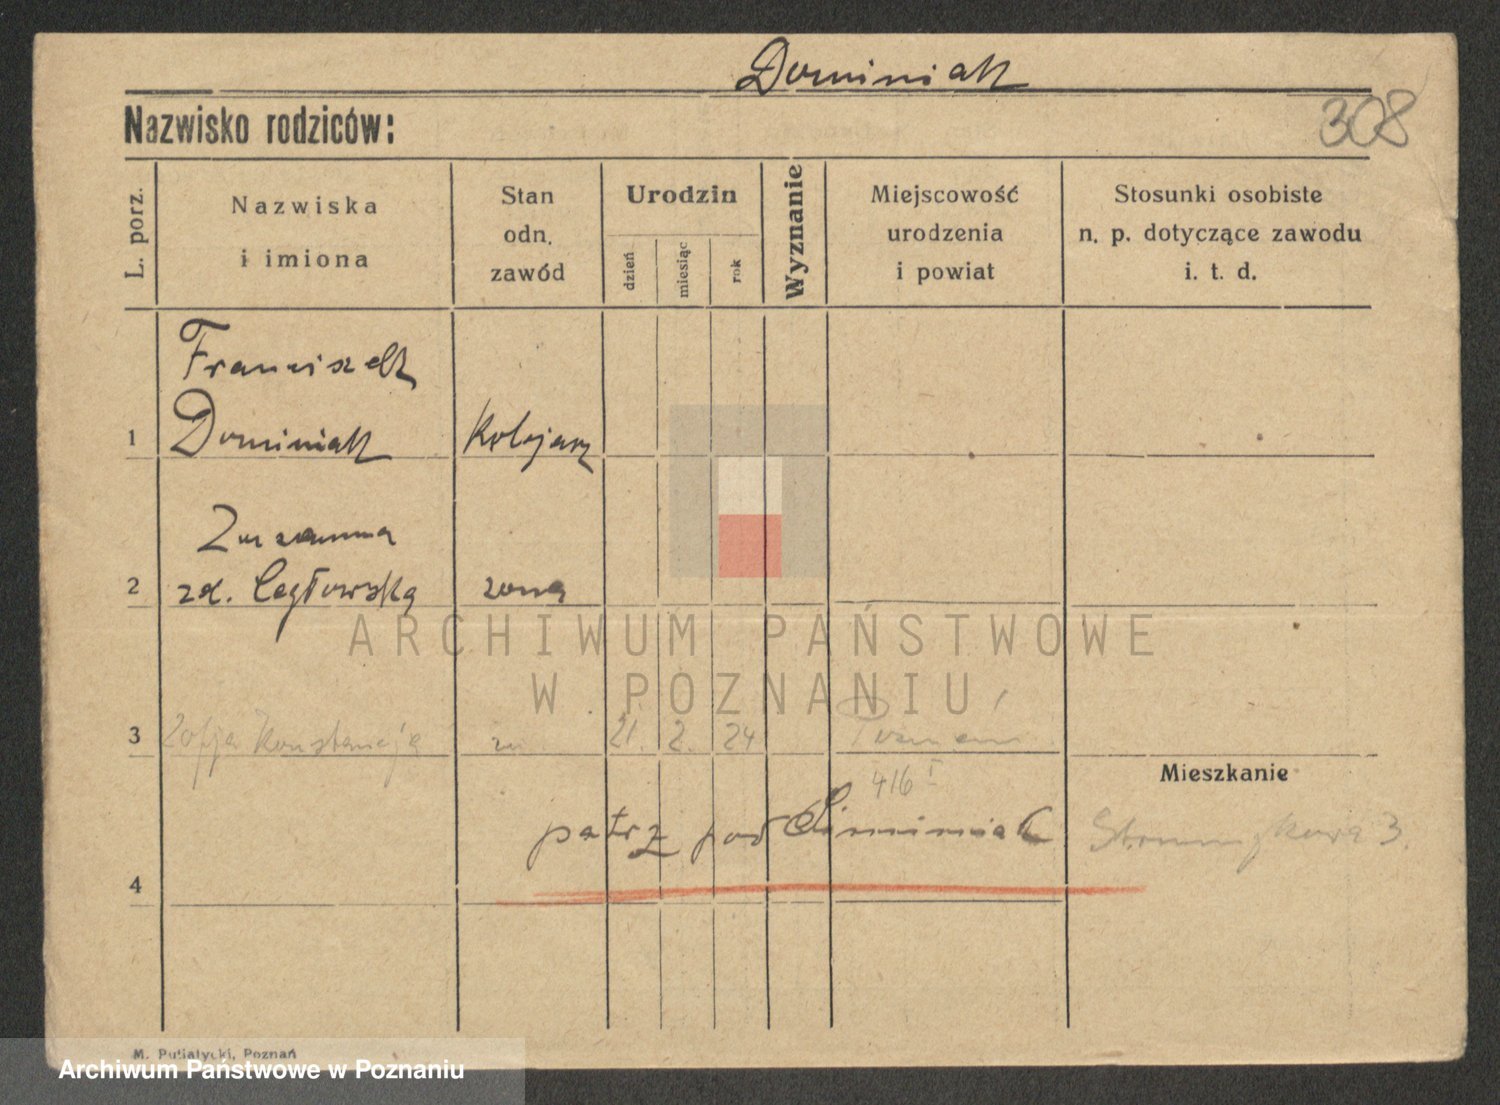 Dominiak
308
Nazwisko rodziców:
L. porz.
Nazwiska
i imiona
Stan
odn.
zawód
Urodzin
dzień
miesiąc
rok
Wyznanie
Miejscowość
urodzenia
i powiat
Stosunki osobiste
n. p. dotyczące zawodu
i. t. d.
Franciszek
1 Dominiak Kolejarz
Zuzanna
2 zd. Cegłowska żona
ARCHIWUM PAŃSTWOWE
W POZNANIU
3 Zofja Konstancja 21. 2. 24 Poznań
Mieszkanie
416 I
patrz pod 3.
4
M. Putiatycki, Poznań
Archiwum Państwowe w Poznaniu